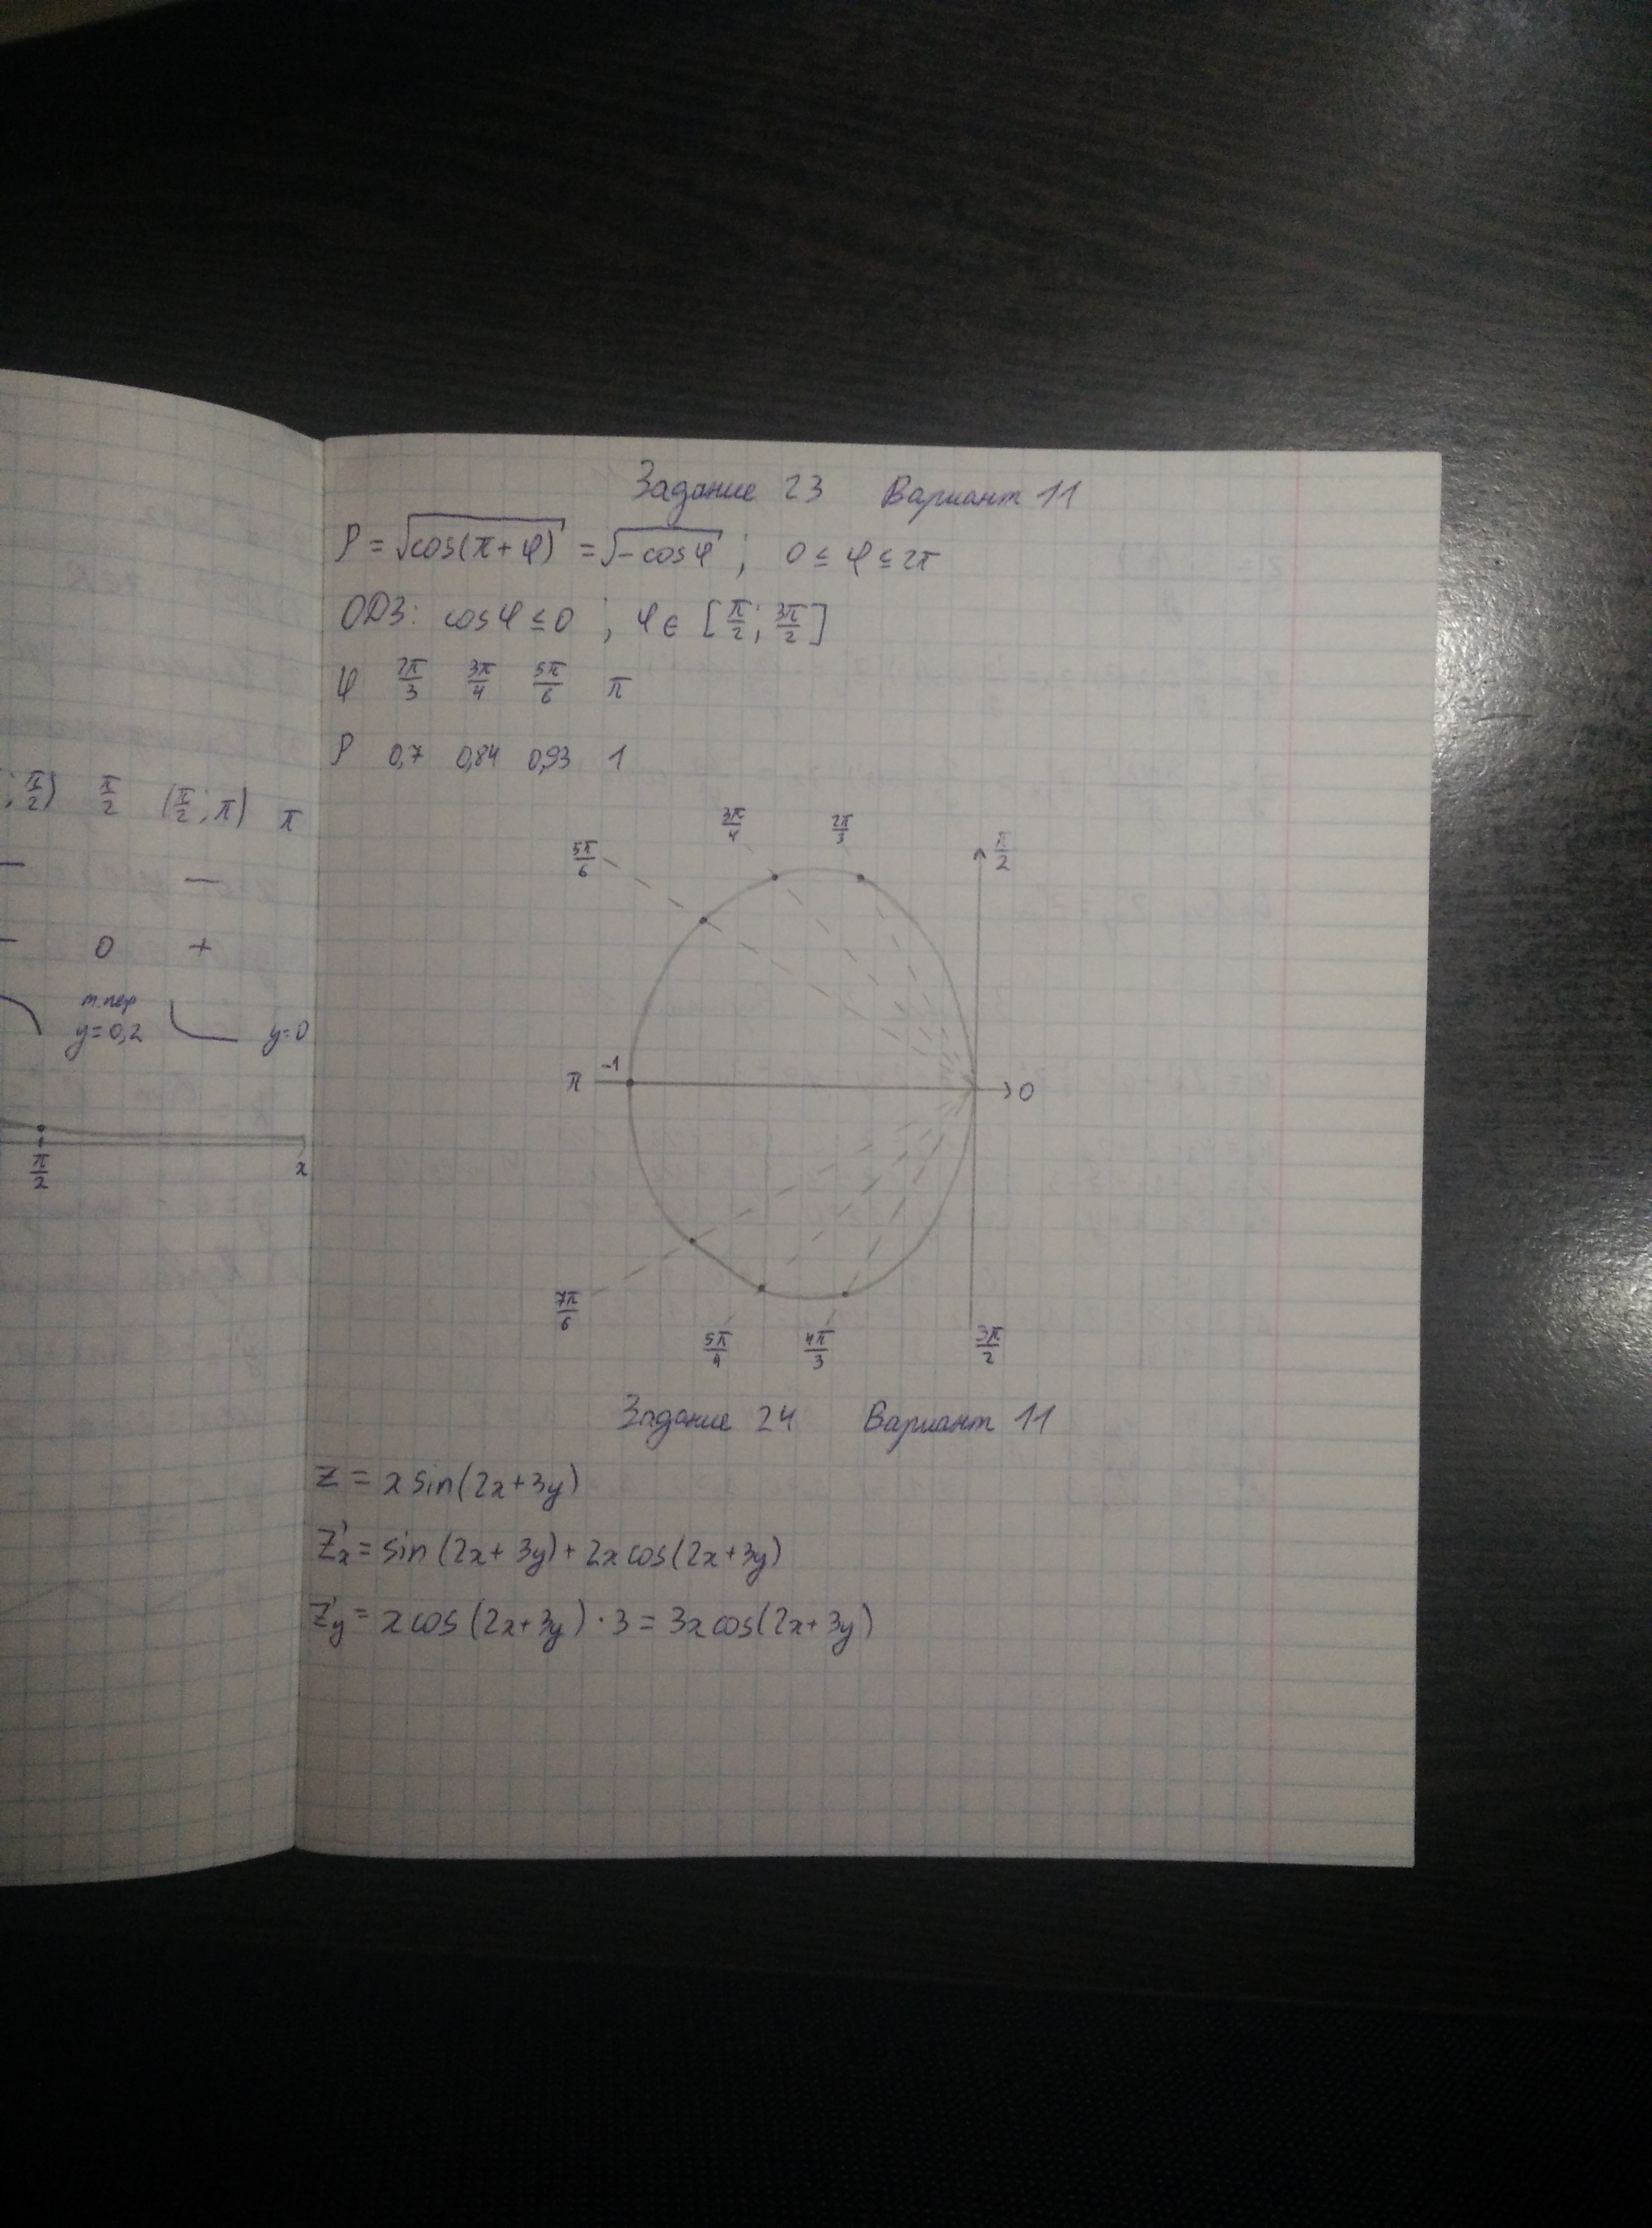 ; π/2) π/2 (π/2; π) π
— —
— 0 +
т.пер
y=0,2 y=0
π/2 x
Задание 23 Вариант 11
ρ = √cos(π+φ) = √-cosφ ; 0 ≤ φ ≤ 2π
ОДЗ: cosφ ≤ 0 ; φ ∈ [π/2; 3π/2]
φ 2π/3 3π/4 5π/6 π
ρ 0,7 0,84 0,93 1
5π/6 3π/4 2π/3 π/2
π -1 0
7π/6 5π/4 4π/3 3π/2
Задание 24 Вариант 11
z = x sin(2x+3y)
z'x = sin(2x+3y)+2x cos(2x+3y)
z'y = x cos(2x+3y)·3 = 3x cos(2x+3y)